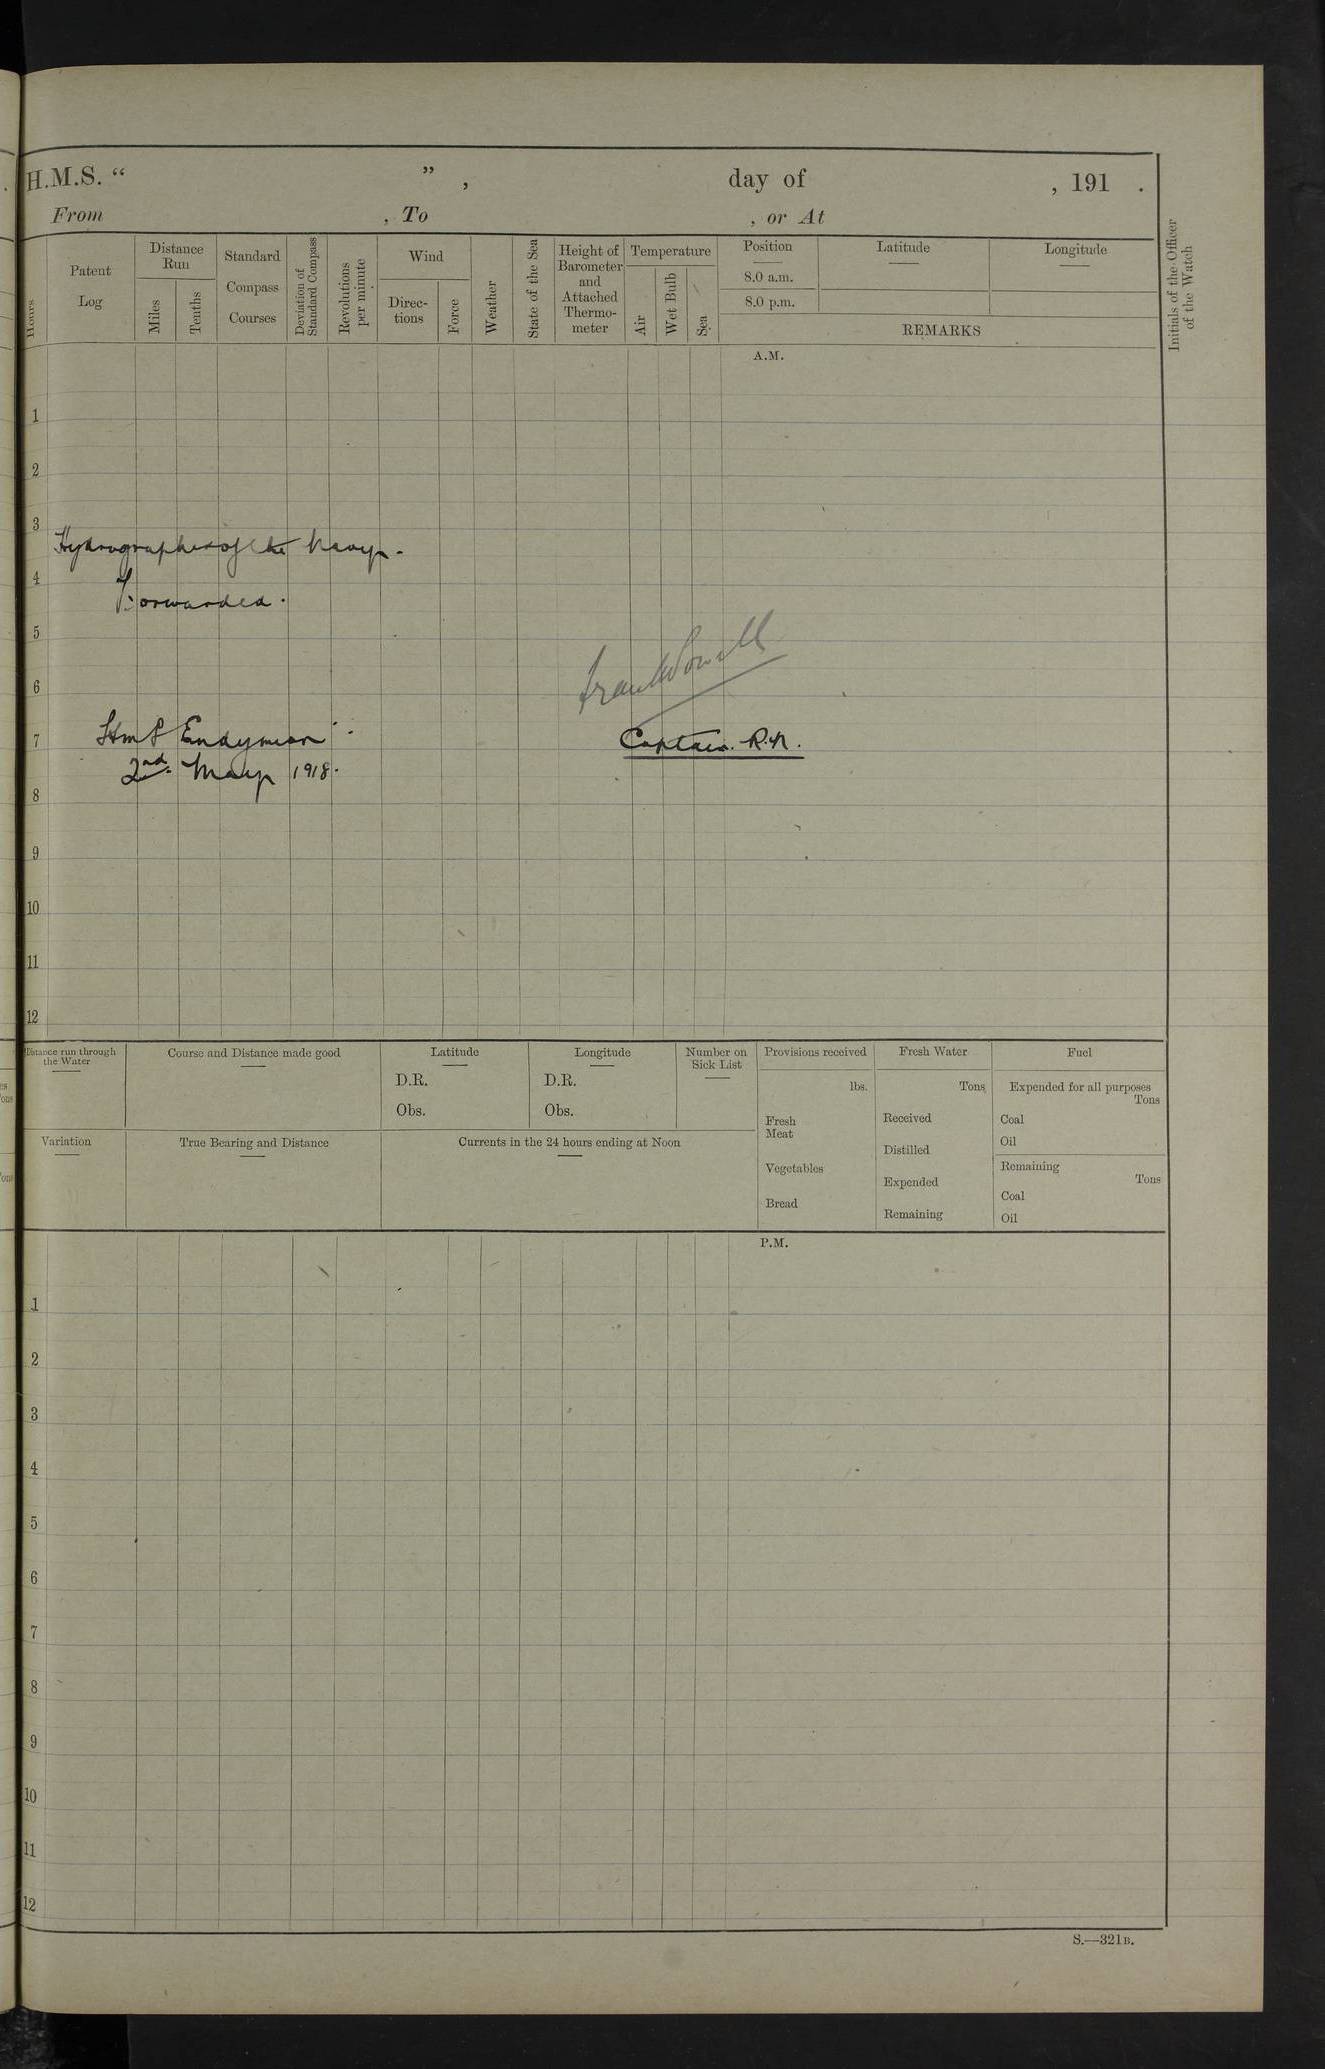 H.M.S. “ ” , day of , 191 .
From , To , or At
Hours
Patent Log
Distance Run
Miles
Tenths
Standard Compass Courses
Deviation of Standard Compass
Revolutions per minute
Wind
Direc-tions
Force
Weather
State of the Sea
Height of Barometer and Attached Thermo-meter
Temperature
Air
Wet Bulb
Sea
Position
8.0 a.m.
8.0 p.m.
Latitude
Longitude
REMARKS
Initials of the Officer of the Watch
A.M.
1
2
3
Hydrographer of the Navy.
4
Forwarded.
5
6
Frank Powell
7
HMS Endymion
Captain. R.N.
2nd. May 1918.
8
9
10
11
12
Distance run through the Water
Course and Distance made good
Latitude
D.R.
Obs.
Longitude
D.R.
Obs.
Number on Sick List
Provisions received
lbs.
Fresh Meat
Vegetables
Bread
Fresh Water
Tons
Received
Distilled
Expended
Remaining
Fuel
Expended for all purposes
Tons
Coal
Oil
Remaining
Tons
Coal
Oil
Variation
True Bearing and Distance
Currents in the 24 hours ending at Noon
P.M.
1
2
3
4
5
6
7
8
9
10
11
12
S.—321B.